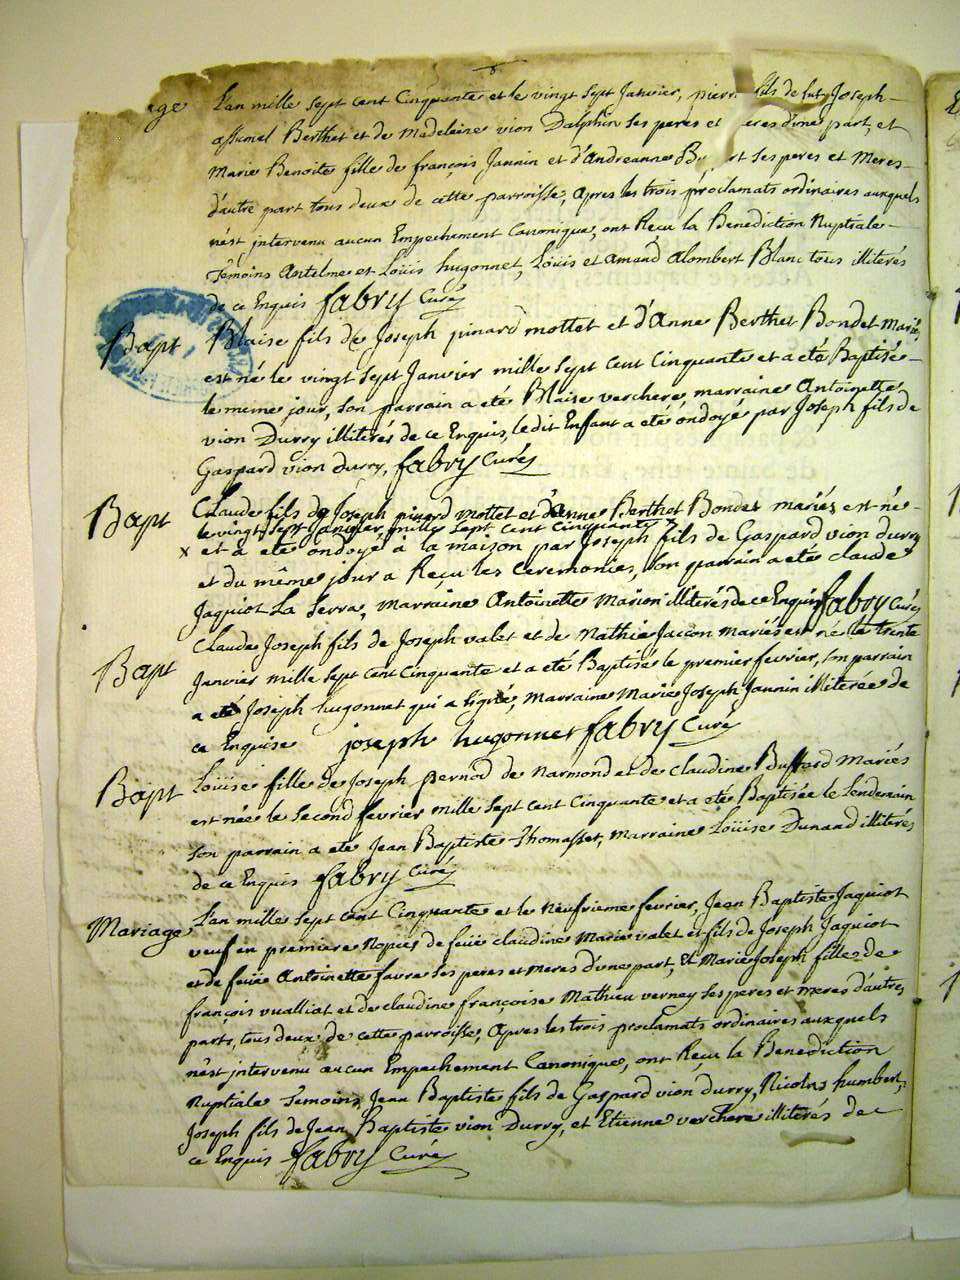 age L'an mille sept cent Cinquante et le vingt sept Janvier, pierre fils de fut Joseph
Berthet et de Madeleine vion Dalphin ses peres et meres d'une part, et
Marie Benoite fille de françois Jannin et d'Andreanne ses peres et Meres
d'autre part tous deux de cette parroisse, apres les trois proclamats ordinaires auxquels
n'est intervenu aucun Empechement Canonique, ont Reçu la Benediction Nuptiale
Témoins Antelme et Loüis hugonnet, Loüis et amand alombert Blanc tous illiterés
de ce Enquis fabry Curé
Bapt Blaise fils de Joseph pinard mottet et d'Anne Berthet Bondet Mariés,
est né le vingt sept Janvier mille sept cent Cinquante et a eté Baptisé
le meme jour, son parrain a eté Blaise verchere, marraine Antoinette
vion Durry illiterés de ce Enquis, le dit Enfant a été ondoyé par Joseph fils de
Gaspard vion durry, fabry Curé
Bapt Claude fils de Joseph pinard mottet et d'anne Berthet Bondet mariés est né
le vingt sept janvier mille sept cent cinquante x
x et a eté ondoyé à la maison par Joseph fils de Gaspard vion durry
et du même jour a Reçu les Ceremonies, son parrain a eté claude
Jaquiot La Serra, Marraine Antoinette Marion illiterés de ce Enquis fabry Curé
Bapt Claude Joseph fils de Joseph valet et de Mathie Jaccon Mariés est né le trente
Janvier mille sept cent Cinquante et a eté Baptisé le premier fevrier, son parrain
a eté Joseph hugonnet qui a signé, Marraine Marie Joseph Jannin illiterée de
ce Enquise joseph hugonnet fabry Curé
Bapt Loüise fille de Joseph pernod de narmond et de claudine Buffard Mariés
est née le second fevrier mille sept cent Cinquante et a eté Baptisée le Lendemain
son parrain a eté Jean Baptiste Thomasset, Marraine Loüise Dunand illiterés
de ce Enquis fabry Curé
Mariage L'an mille sept cent Cinquante et le Neufvieme fevrier, Jean Baptiste Jaquiot
veuf en premiere Nopces de feüe claudine Marie valet et fils de Joseph Jaquiot
et de feüe Antoinette favre ses peres et meres d'une part, Et Marie Joseph fille de
françois vualliat et de claudine françoise Mathieu verney ses peres et meres d'autre
part, tous deux de cette parroisse, Apres les trois proclamats ordinaires auxquels
n'est intervenu aucun Empechement Canonique, ont Reçu la Benediction
Nuptiale Temoins Jean Baptiste fils de Gaspard vion durry, Nicolas humbert,
Joseph fils de Jean Baptiste vion Durry, et Etienne verchere illiterés de
ce Enquis fabry Curé